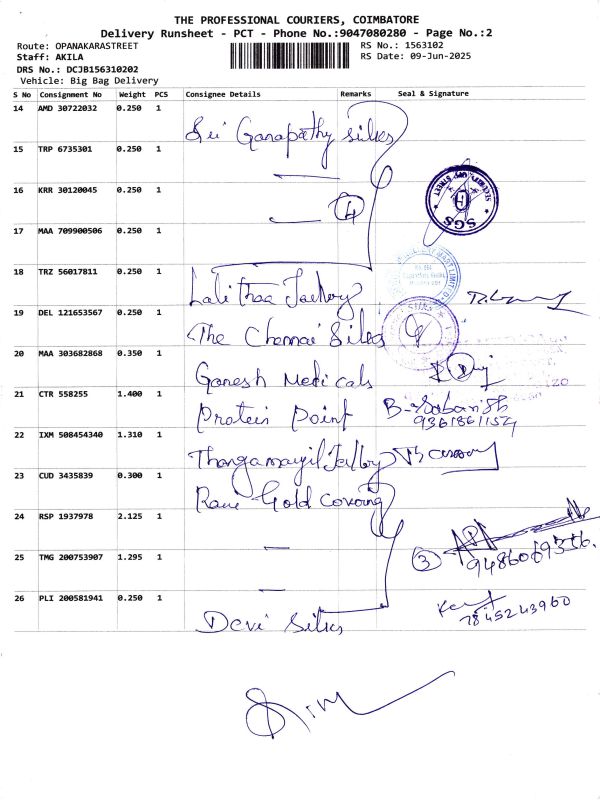 THE PROFESSIONAL COURIERS, COIMBATORE
Delivery Runsheet - PCT - Phone No.:9047080280 - Page No.:2
Route: OPANAKARASTREET
RS No.: 1563102
Staff: AKILA
RS Date: 09-Jun-2025
DRS No.: DCJB156310202
Vehicle: Big Bag Delivery
S No Consignment No Weight PCS Consignee Details Remarks Seal & Signature
14 AMD 30722032 0.250 1 Sri Ganapathy silks
15 TRP 6735301 0.250 1
16 KRR 30120045 0.250 1 4
SECURITY OPP. STREET
SGS
17 MAA 709900506 0.250 1
18 TRZ 56017811 0.250 1 Lalithaa Jwellery
19 DEL 121653567 0.250 1 The Chennai Silks
20 MAA 303682868 0.350 1 Ganesh Medicals
21 CTR 558255 1.400 1 Protein Point B-Sabarish
9361861154
22 IXM 508454340 1.310 1 Thangamayil Jwllery
23 CUD 3435839 0.300 1 Rani Gold Covoing
24 RSP 1937978 2.125 1
25 TMG 200753907 1.295 1 3 9486069356.
26 PLI 200581941 0.250 1 Devi Silks 7845243960